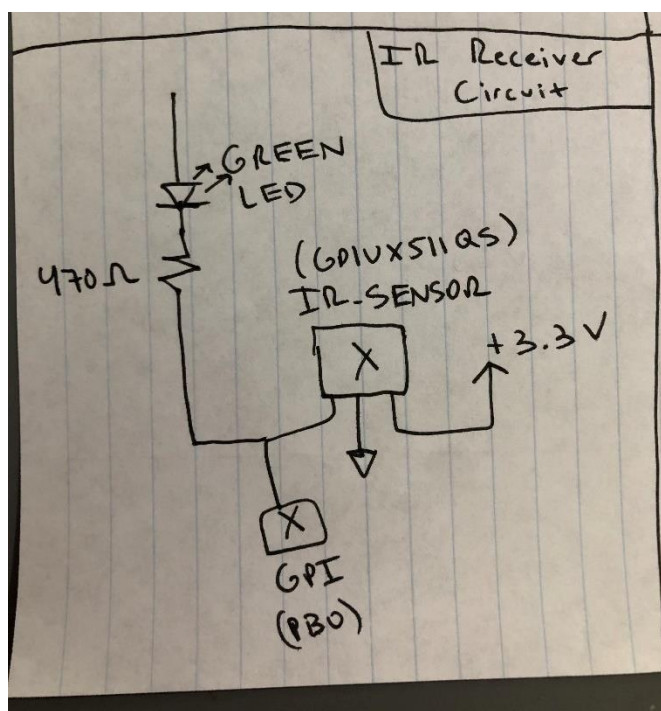 IR Receiver
Circuit
GREEN
LED
470Ω
(GP1UX511QS)
IR-SENSOR
+3.3V
X
X
GPI
(PB0)